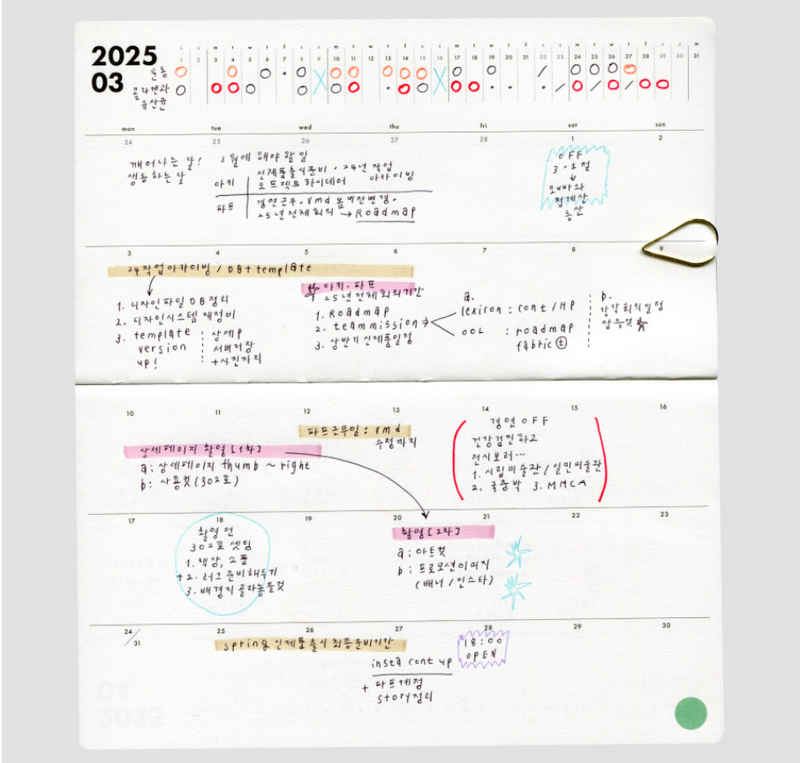 2025
03
운동
콜라겐과
유산균
s s m t w t f s s m t w t f s s m t w t f s s m t w t f s s m
1 2 3 4 5 6 7 8 9 10 11 12 13 14 15 16 17 18 19 20 21 22 23 24 25 26 27 28 29 30 31
mon tue wed thu fri sat sun
24 25 26 27 28 1 2
깨어나는 달!
생동하는 달
3월에 해야할 일
아카
신제품출시준비 · 24년 작업
오브젝트화이데어 아카이빙
파트
경연근무. vmd 봄버전변경.
25년전체회의 → Roadmap
OFF
3·1절
↓
오빠와
청계산
등산
3 4 5 6 7 8 9
24작업아카이빙 / DB+template
1. 디자인파일 DB정리
2. 디자인시스템 재정비
3. template
version
up!
상세P
서버저장
+사진까지
아카·파트
25년전체회의기간
1. Roadmap
2. teammission
3. 상반기 신제품일정
a.
lexicon : cont/HP
OOL : roadmap
fabric
b.
각각회의일정
잡을것
10 11 12 13 14 15 16
파트근무일: vmd
수정까지
상세페이지 촬영[1차]
a: 상세페이지 thumb ~ right
b: 사용컷(302호)
경연 OFF
건강검진하고
전시보러…
1. 시립미술관/일민미술관
2. 국중박 3. MMCA
17 18 19 20 21 22 23
촬영 전
302호 셋팅
1. 책상, 소품
+2. 러그 준비해두기
3. 배경지 골라놓을것
촬영[2차]
a: 아트컷
b: 프로모션이미지
(배너/인스타)
24/31 25 26 27 28 29 30
spring 신제품출시 최종준비기간
insta cont up
+ 파트계정
story정리
18:00
OPEN